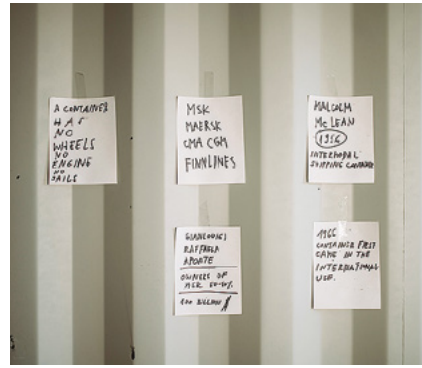 A CONTAINER
HAS
NO
WHEELS
NO
ENGINE
NO
SAILS
MSK
MAERSK
CMA CGM
FINNLINES
MALCOLM
McLEAN
1956
INTERMODAL
SHIPPING CONTAINER
GIANLUIGI
RAFFAELA
APONTE
OWNERS OF
50-50%
100 BILLION $
1966
CONTAINER FIRST
CAME IN THE
INTERNATIONAL
USE.